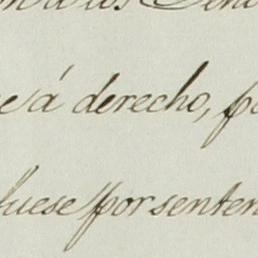 á los
e á derecho, p
fuese por senten